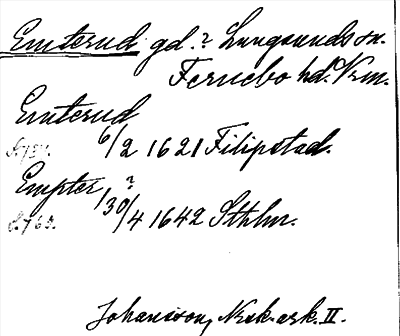 Emterud gd.? Lungsunds sn.
Fernebo hd. Vrm.
Emterud
S. 757. 6/2 1621 Filipstad.
Empter ?
S. 763. 1/30/4 1642 Sthlm.
Johansson, Nock. ark. II.